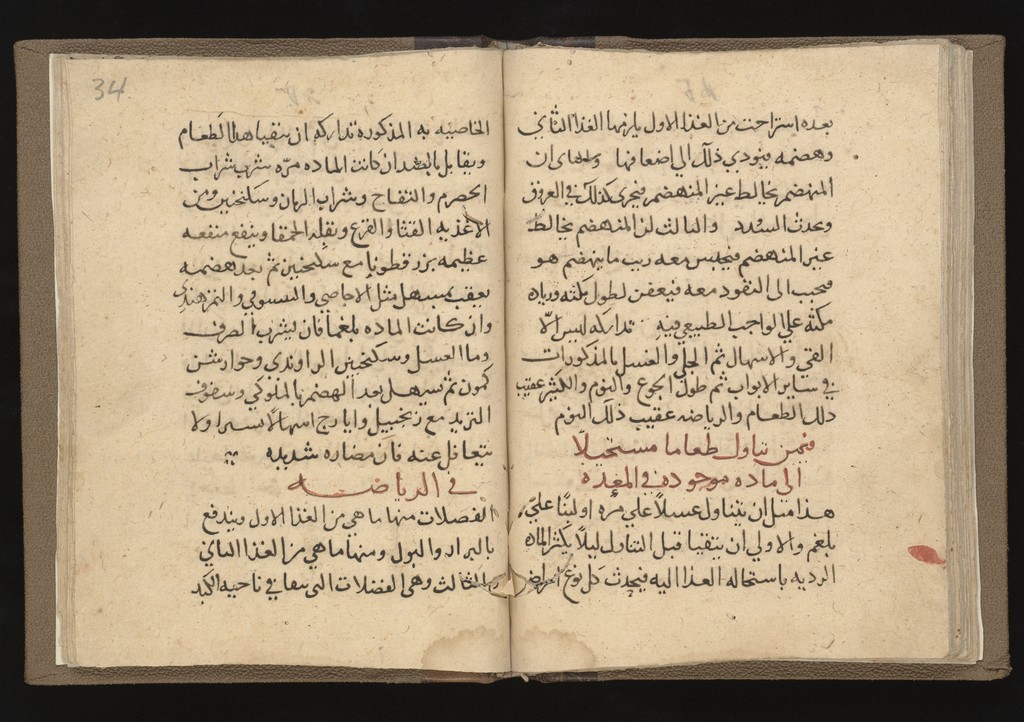 بعده استراحت من الغذا الاول يلزمها الغذا الثاني
وهضمه فيودي ذلك الي اضعافها ان
المنهضم يخالط غير المنهضم فيجري كذلك في العروق
ويحدث السدد والثالث ان المنهضم يخالط
غير المنهضم فيحبس معه ريث ما ينهضم هو
فيجب الى النفود معه فيعفن لطول مكثه وزياده
مكثه علي الواجب الطبيعي فيه تداركه ليس الا
القي والاسهال ثم الجلي والغسل بالمذكورات
في ساير الابواب ثم طول الجوع والنوم والكثير عقيب
ذلك الطعام والرياضه عقيب ذلك النوم
فيمن تناول طعاما مستحيلا
الى ماده موجوده في المعده
هذا مثل ان يتناول عسلا علي مره او لبنا علي
بلغم والاولي ان يتقيا قبل التناول ليلا يكثر الماده
الرديه باستحاله الغذا اليه فيحدث كل نوع امراض
34
الخاصيه به المذكوره تداركه ان يتقيا هذا الطعام
ويقابل بالضد ان كانت الماده مره بشرب شراب
الحصرم والتفاح وشراب الرمان وسكنجبين ومن
الاغذيه القثا والقرع وبقله الحمقا وينفع منفعه
عظيمه بزر قطونا مع سكنجبين ثم بعد هضمه
يعقب بمسهل مثل الاجاصي والتمر هندي
وان كانت الماده بلغما فان يشرب الصرف
وما العسل وسكنجبين الراوندي وجوارشن
كمون ثم يسهل بعد الهضم بالملوكي وسفوف
التربد مع زنجبيل وايارج اسهالا يسيرا ولا
يتغافل عنه فان مضاره شديده
في الرياضه
الفضلات منها ما هي من الغذا الاول ويندفع
بالبراز والبول ومنها ما هي من الغذا الثاني
والثالث وهي الفضلات التي تبقا في ناحيه الكبد